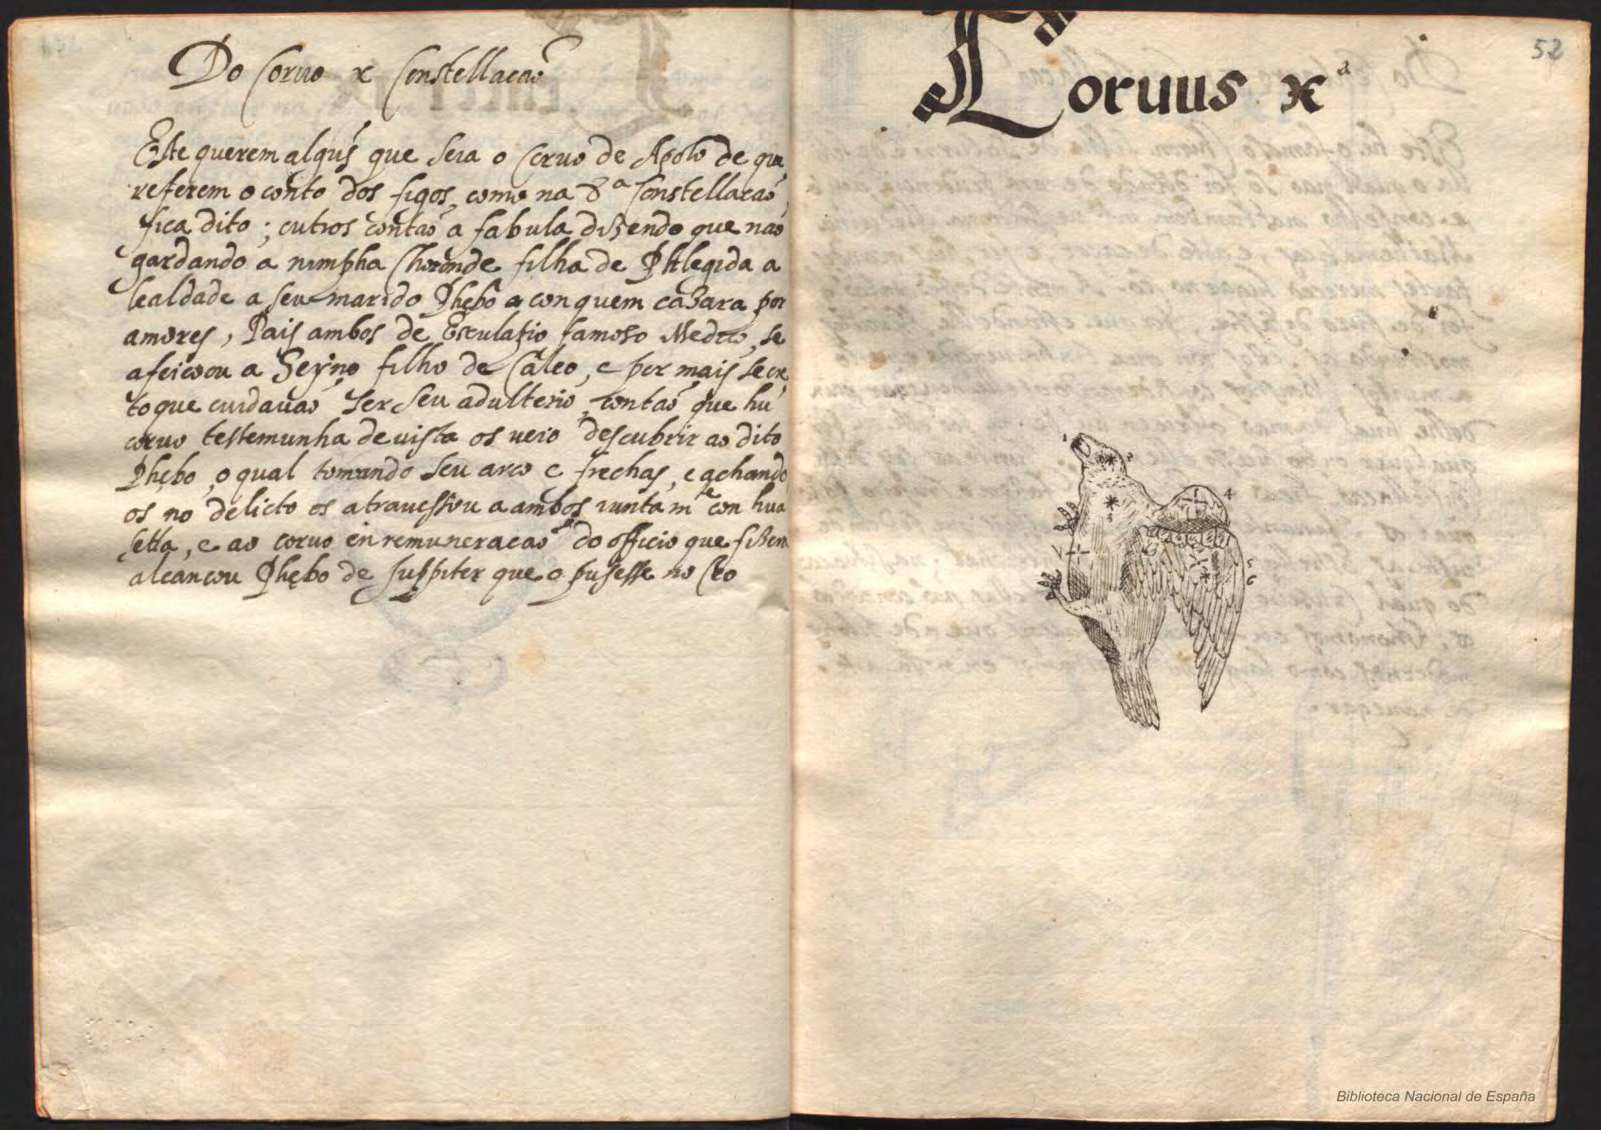 Do Coruo x Constellacaõ
Este querem algus̃ que seia o Coruo de Apolo de que
referem o conto dos figos, como na 8ª Constellacaõ
fica dito; outros contaõ a fabula dizendo que naõ
gardando a nimpha Choronde filha de Phlegida a
lealdade a seu marido Phebo a con quem cazara por
amores, Pais ambos de Esculapio famoso Medico, se
afeicoou a Seyno filho de Caleo, e por mais secre
to que cuidauaõ ser seu adulterio, contaõ que hũ
coruo testemunha de uista os ueio descubrir ao dito
Phebo, o qual tomando seu arco e frechas, e achando
os no delicto os atrauessou a ambos iuntamte con hua
setta, e ao coruo en remuneracaõ do officio que fizera
alcancou Phebo de Iuppiter que o pusesse no Ceo
52
Coruus xª
1
4
5
6
Biblioteca Nacional de España